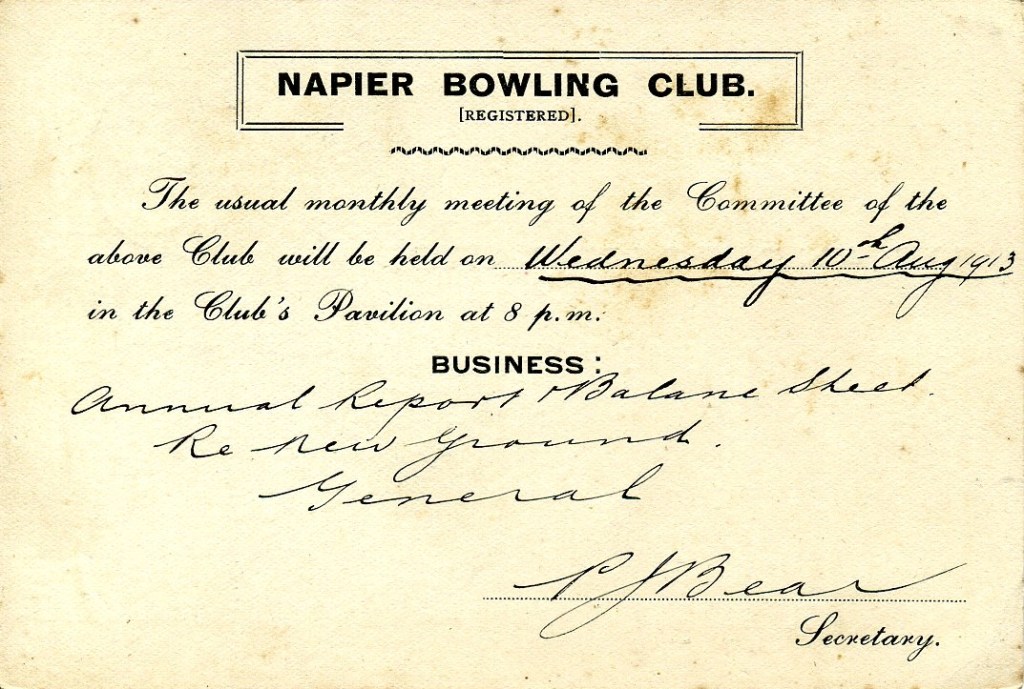 NAPIER BOWLING CLUB.
[REGISTERED].
The usual monthly meeting of the Committee of the
above Club will be held on Wednesday 10th Aug 1913
in the Club's Pavilion at 8 p.m.
BUSINESS:
Annual Report & Balance Sheet.
Re New Ground.
General
P J Bear
Secretary.